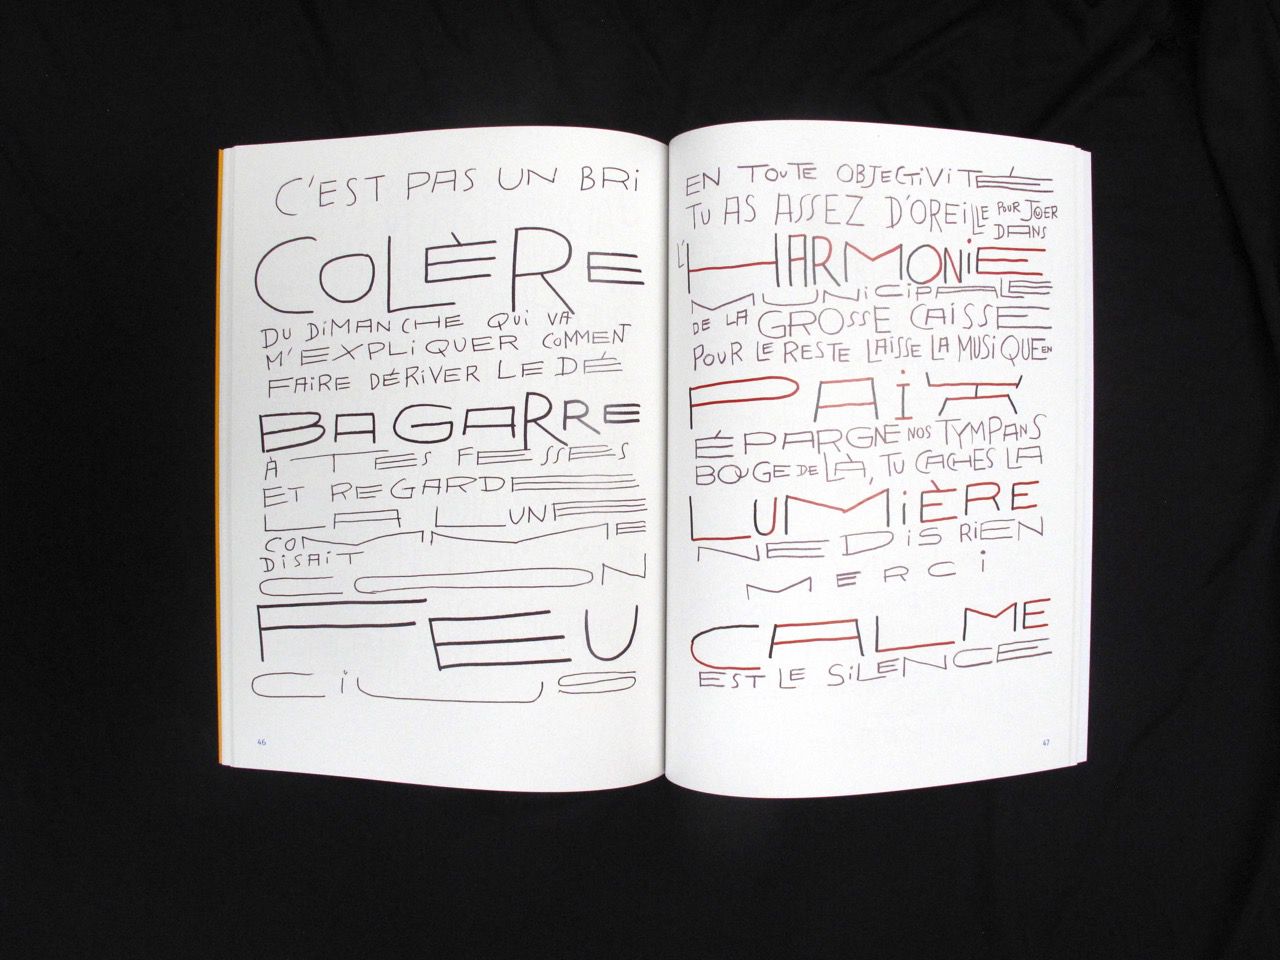 C'EST PAS UN BRI
COLÈRE
DU DIMANCHE QUI VA
M'EXPLIQUER COMMENT
FAIRE DÉRIVER LE DÉ
BAGARRE
À TES FESSES
ET REGARDE
LA LUNE
COMME
DISAIT
CŒON
FEU
CIUS
46
EN TOUTE OBJECTIVITÉ
TU AS ASSEZ D'OREILLE POUR JOUER
DANS
L'HARMONIE
MUNICIPALE
DE LA GROSSE CAISSE
POUR LE RESTE LAISSE LA MUSIQUE EN
PAIX
ÉPARGNE NOS TYMPANS
BOUGE DE LÀ, TU CACHES LA
LUMIÈRE
NE DIS RIEN
MERCI
CALME
EST LE SILENCE
47